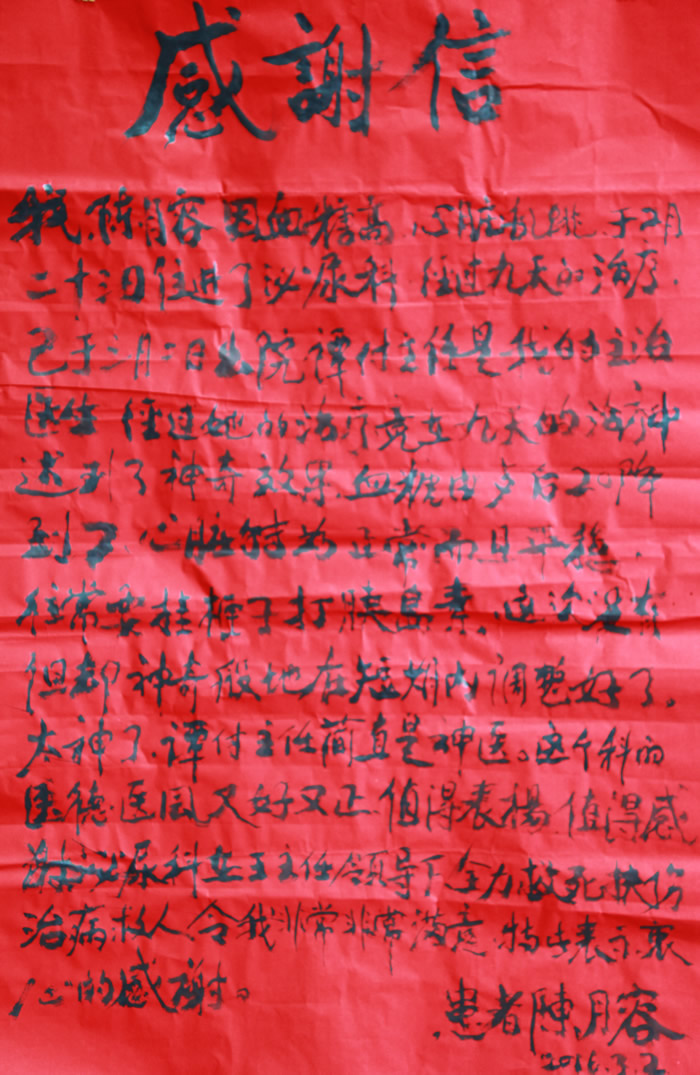 感謝信
我陈月容因血糖高,心脏乱跳于2月
二十三日住进了泌尿科经过九天的治疗.
已于三月二日出院谭付主任是我的主治
医生经过她的治疗竟在九天的治疗中
达到了神奇效果血糖由多后20降
到7.心脏转为正常而且平稳.
往常要挂瓶子打胰岛素,这次没有
但却神奇般地在短期内调整好了。
太神了.谭付主任简直是神医。这个科的
医德医风又好又正值得表楊值得感
謝泌尿科在王主任领导下全力救死扶伤
治病救人令我非常非常满意.特此表示衷
心的感謝。
患者陳月容
2016.3.2